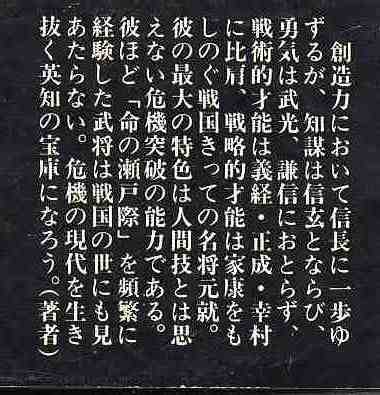 創造力において信長に一歩ゆ
ずるが、知謀は信玄とならび、
勇気は武光、謙信におとらず、
戦術的才能は義経・正成・幸村
に比肩、戦略的才能は家康をも
しのぐ戦国きっての名将元就。
彼の最大の特色は人間技とは思
えない危機突破の能力である。
彼ほど「命の瀬戸際」を頻繁に
経験した武将は戦国の世にも見
あたらない。危機の現代を生き
抜く英知の宝庫になろう。(著者)